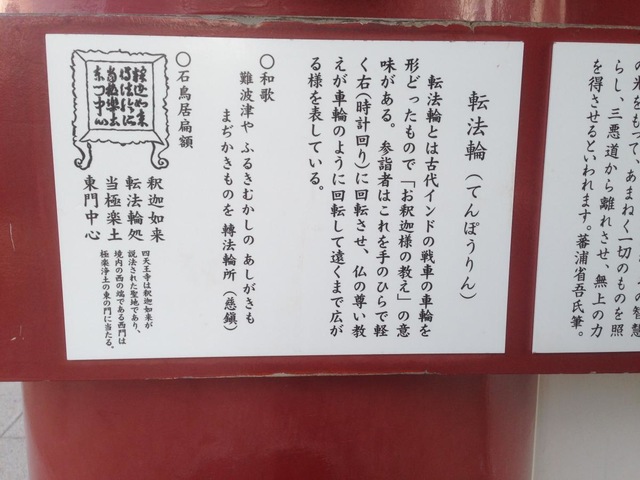 の光をもって、あまねく一切のものを照
らし、三悪道から離れさせ、無上の力
を得させるといわれます。蕃浦省吾氏筆。
転法輪（てんぽうりん）
転法輪とは古代インドの戦車の車輪を
形どったもので「お釈迦様の教え」の意
味がある。参詣者はこれを手のひらで軽
く右（時計回り）に回転させ、仏の尊い教
えが車輪のように回転して遠くまで広が
る様を表している。
〇和歌
難波津や ふるきむかしの あしがきも
まぢかきものを 轉法輪所（慈鎭）
〇石鳥居扁額
釈迦如来
転法輪処
当極楽土
東門中心
釈迦如来
転法輪処
当極楽土
東門中心
四天王寺は釈迦如来が
説法された聖地であり、
境内の西の端である西門は
極楽浄土の東の門に当たる。